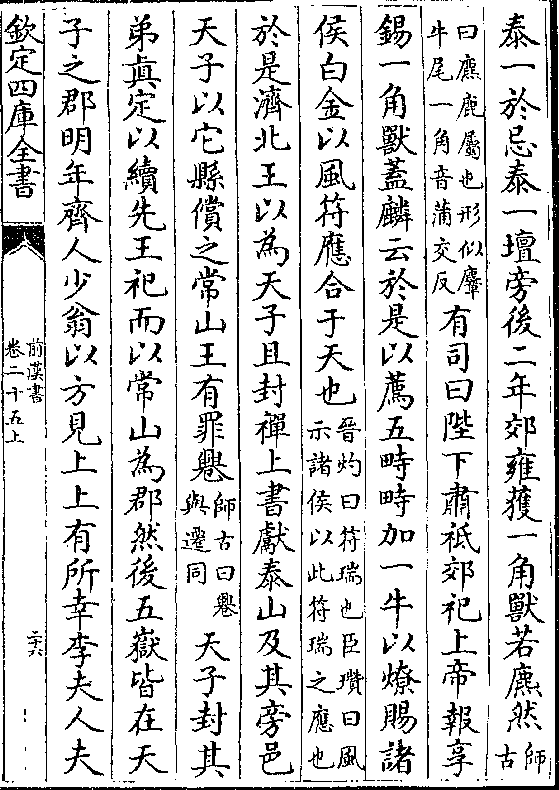 泰一於忌泰一壇旁後二年郊雍獲一角獸若麃然師古
曰麃鹿屬也形似麞牛尾一角音蒲交反有司曰陛下肅祗郊祀上帝報享
錫一角獸蓋麟云於是以薦五畤畤加一牛以燎賜諸
侯白金以風符應合于天也晉灼曰符瑞也臣瓚曰風示諸侯以此符瑞之應也
於是濟北王以為天子且封禪上書獻泰山及其旁邑
天子以它縣償之常山王有罪䙴師古曰䙴與遷同天子封其
弟真定以續先王祀而以常山為郡然後五嶽皆在天
子之郡明年齊人少翁以方見上上有所幸李夫人夫
欽定四庫全書
前漢書
卷二十五上
二六